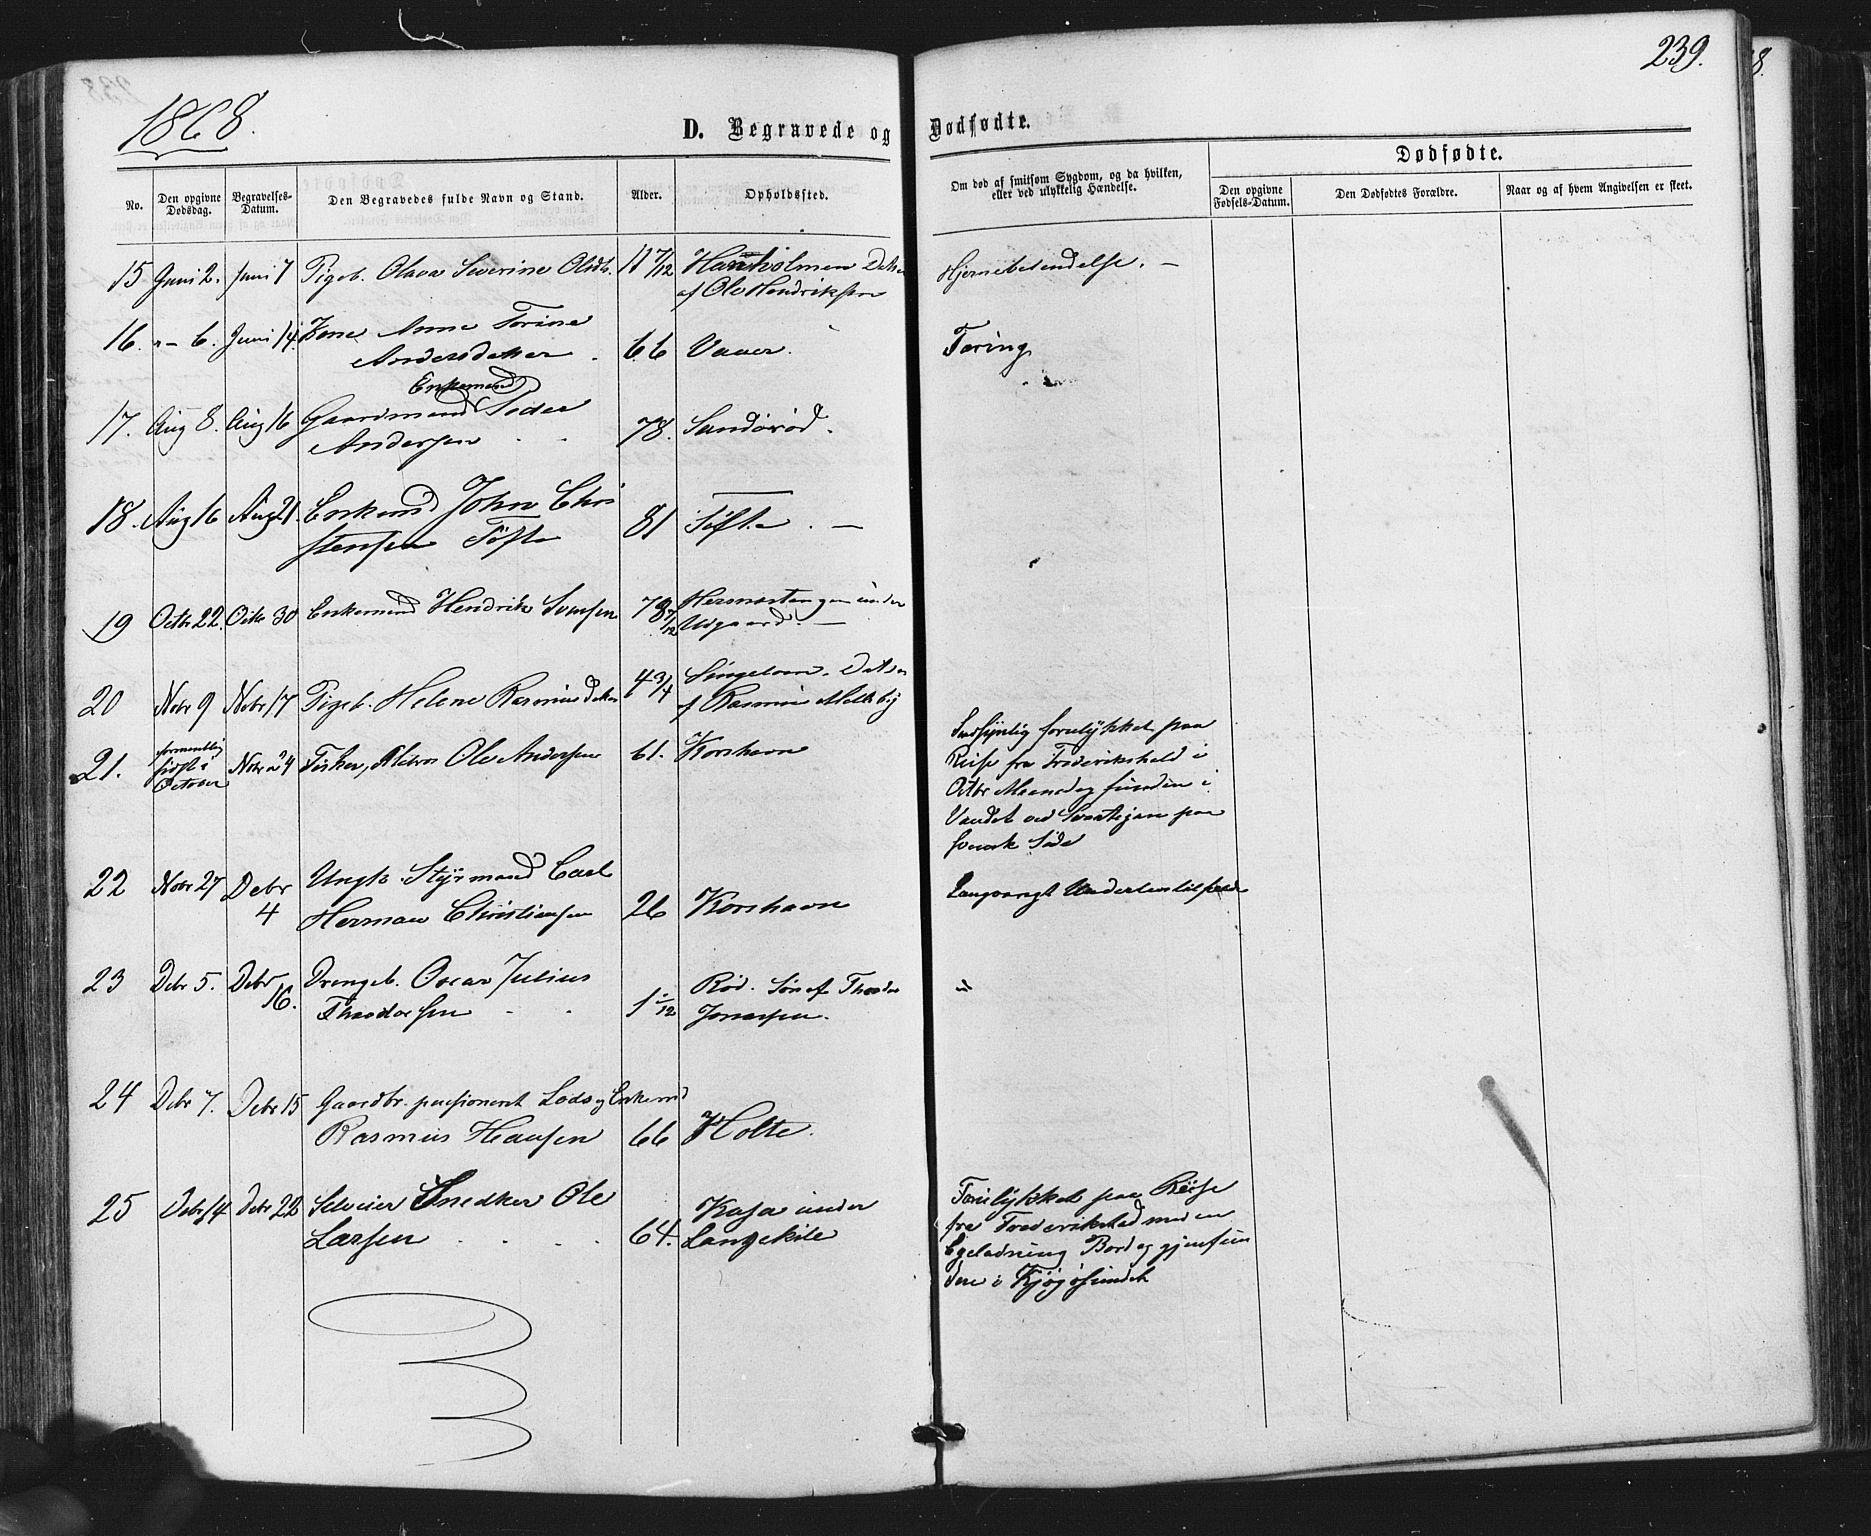 239.
1868.
D. Begravede og Dødfødte.
No.
Den opgivne Dødsdag.
Begravelses-Datum.
Den Begravedes fulde Navn og Stand.
Alder.
Opholdssted.
Om død af smitsom Sygdom, og da hvilken, eller ved ulykkelig Hændelse.
Dødfødte.
Den opgivne Fødsels-Datum.
Den Dødfødtes Forældre.
Naar og af hvem Angivelsen er skeet.
15 Juni 2. Juni 7 Pigeb. Olava Severine Olsdtr. 11 7/12
af Ole Hendriksen
Hjernebetændelse. —
16. "— 6. Juni 14. Kone Anne Torine
Andersdatter 66 Vauer.
Tæring
Enkemand
17. Aug 8. Aug 16 Gaardmand Peder
Andersen 78. Sandørød.
18. Aug 16 Aug 21. Enkemd John Chri
stensen Tofte 81 Tofte. —
19 Octbr 22. Octbr 30 Enkemand Hendrik Svensen 78 7/12
under
Urgaard. —
20 Nobr 9 Nobr 17 Pigeb. Helene Rasmusdatter 4 3/4
af Rasmus Melleby
21. formentlig
sidst i
October
Nobr 24 Fisker, Ole Andersen 61. Korshavn
Sandsynlig forulykket paa
Reise fra Frederikshald i
Octbr Maaned og funden i
Vandet ved paa
svensk Side
22 Nobr 27 Debr
4
Ungk. Styrmand Carl
Herman Christiansen 26 Korshavn
Langvarigt
23 Debr 5. Debr
16.
Drengeb. Oscar Julius
Theodorsen 1 /12
Rød. Søn af Theodor
Jonassen.
"
24 Debr 7. Debr 15 Gaardbr. pensioneret Lods og Enkemd
Rasmus Hansen 66 Holte.
25 Debr 14 Debr 22 Selveier Snedker Ole
Larsen 64.
Kasa under
Langekile
Forulykket paa Reise
fra Frederikstad med en
Egeladning Bord og gjenfun
den i Kjøgøsundet